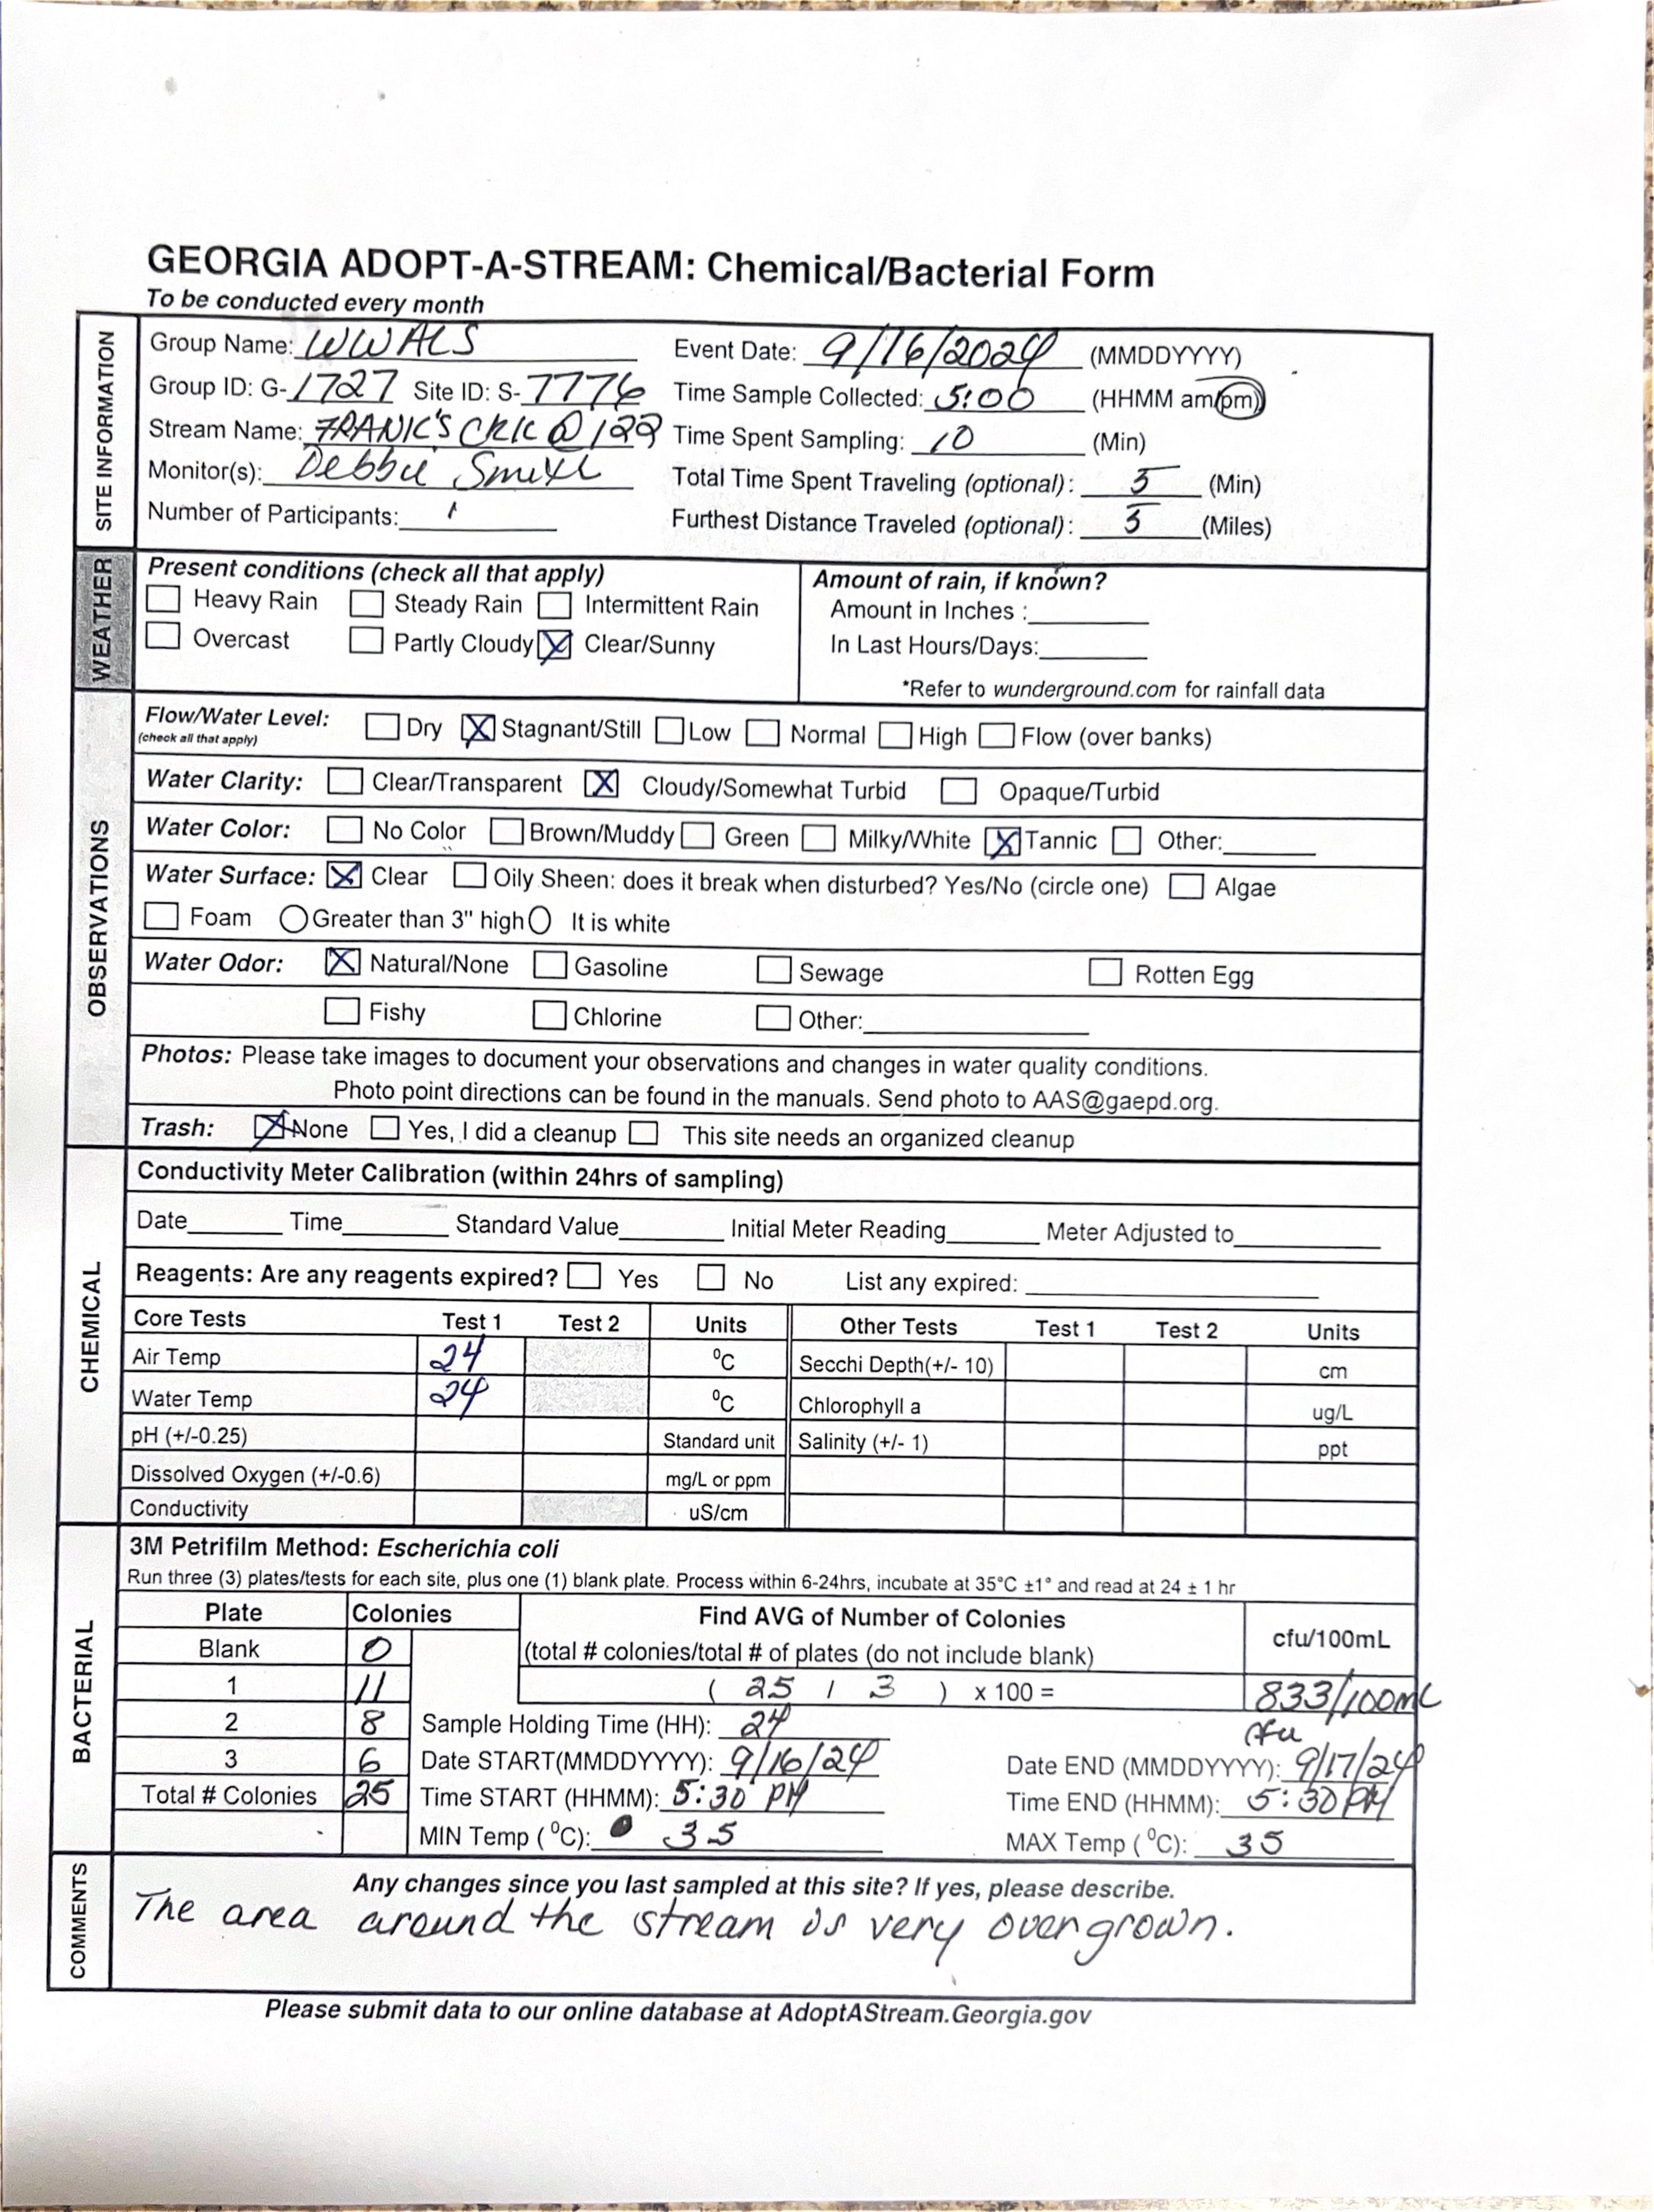 GEORGIA ADOPT-A-STREAM: Chemical/Bacterial Form
To be conducted every month
SITE INFORMATION
Group Name: WWALS Event Date: 9/16/2024 (MMDDYYYY)
Group ID: G-1727 Site ID: S-7776 Time Sample Collected: 5:00 (HHMM am/pm)
Stream Name: FRANK'S CRK @ 122 Time Spent Sampling: 10 (Min)
Monitor(s): Debbie Smith Total Time Spent Traveling (optional): 5 (Min)
Number of Participants: 1 Furthest Distance Traveled (optional): 5 (Miles)
WEATHER
Present conditions (check all that apply) Amount of rain, if known?
Heavy Rain Steady Rain Intermittent Rain Amount in Inches :
Overcast Partly Cloudy X Clear/Sunny In Last Hours/Days:
*Refer to wunderground.com for rainfall data
OBSERVATIONS
Flow/Water Level: Dry X Stagnant/Still Low Normal High Flow (over banks)
(check all that apply)
Water Clarity: Clear/Transparent X Cloudy/Somewhat Turbid Opaque/Turbid
Water Color: No Color Brown/Muddy Green Milky/White X Tannic Other:
Water Surface: X Clear Oily Sheen: does it break when disturbed? Yes/No (circle one) Algae
Foam Greater than 3" high It is white
Water Odor: X Natural/None Gasoline Sewage Rotten Egg
Fishy Chlorine Other:
Photos: Please take images to document your observations and changes in water quality conditions.
Photo point directions can be found in the manuals. Send photo to AAS@gaepd.org.
Trash: X None Yes, I did a cleanup This site needs an organized cleanup
CHEMICAL
Conductivity Meter Calibration (within 24hrs of sampling)
Date Time Standard Value Initial Meter Reading Meter Adjusted to
Reagents: Are any reagents expired? Yes No List any expired:
Core Tests Test 1 Test 2 Units Other Tests Test 1 Test 2 Units
Air Temp 24 °C Secchi Depth(+/- 10) cm
Water Temp 24 °C Chlorophyll a ug/L
pH (+/-0.25) Standard unit Salinity (+/- 1) ppt
Dissolved Oxygen (+/-0.6) mg/L or ppm
Conductivity uS/cm
BACTERIAL
3M Petrifilm Method: Escherichia coli
Run three (3) plates/tests for each site, plus one (1) blank plate. Process within 6-24hrs, incubate at 35°C ±1° and read at 24 ± 1 hr
Plate Colonies Find AVG of Number of Colonies cfu/100mL
Blank 0 (total # colonies/total # of plates (do not include blank)
1 11 ( 25 / 3 ) x 100 = 833/100mL
cfu
2 8 Sample Holding Time (HH): 24
3 6 Date START(MMDDYYYY): 9/16/24 Date END (MMDDYYYY): 9/17/24
Total # Colonies 25 Time START (HHMM): 5:30 PM Time END (HHMM): 5:30 PM
MIN Temp (°C): 35 MAX Temp (°C): 35
COMMENTS
Any changes since you last sampled at this site? If yes, please describe.
The area around the stream is very overgrown.
Please submit data to our online database at AdoptAStream.Georgia.gov